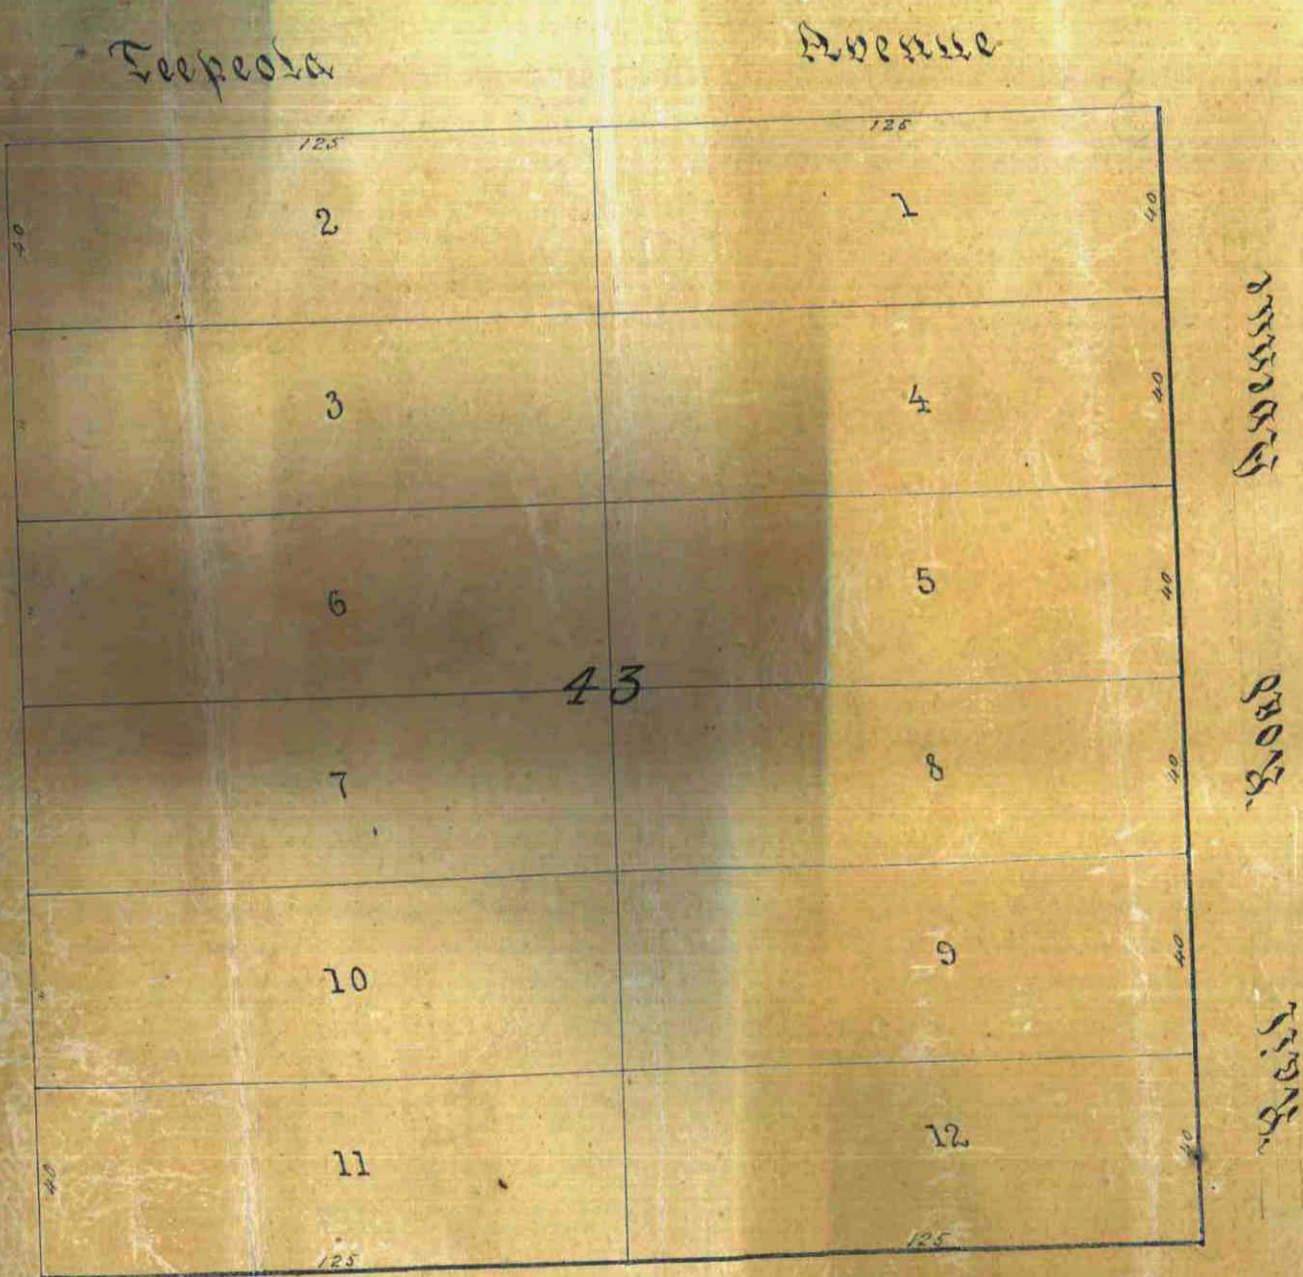 Teepeota Avenue
125 125
40 2 1 40
3 4 40
6 5 40
43
7 8 40
10 9 40
40 11 12 40
125 125
Rail Road Avenue